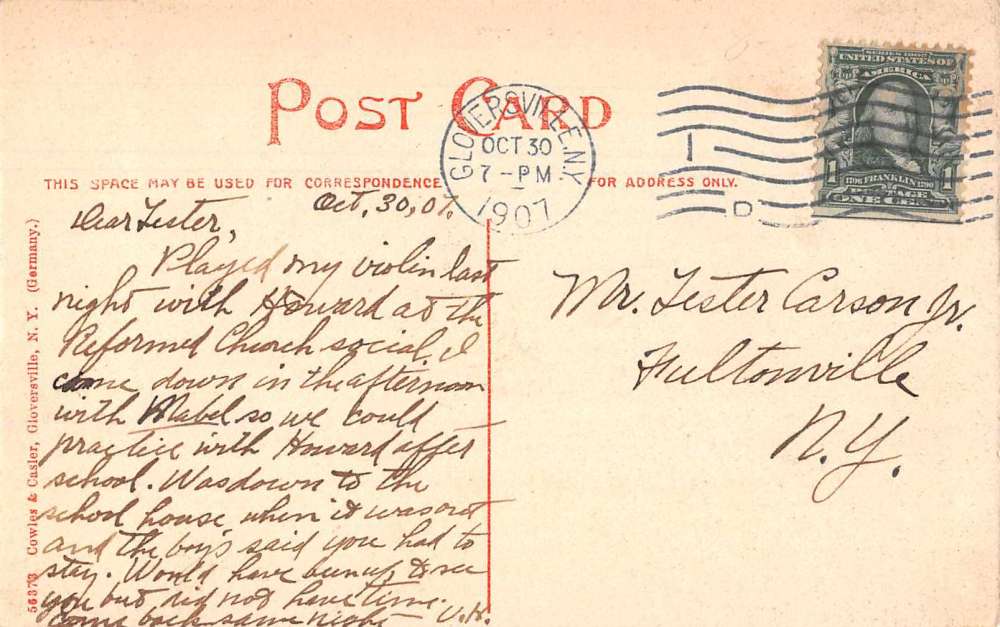 POST CARD
THIS SPACE MAY BE USED FOR CORRESPONDENCE
FOR ADDRESS ONLY.
GLOVERSVILLE, N.Y.
OCT 30
7 - PM
1907
1
D
SERIES 1902
UNITED STATES OF
AMERICA
1 1
1706 FRANKLIN 1790
POSTAGE
ONE CENT
Oct, 30, 07.
Dear Lester,
Played my violin last
night with Howard at the
Reformed Church social, I
came down in the afternoon
with Mabel so we could
practice with Howard after
school. Was down to the
school house when it was out
and the boys said you had to
stay. Would have been up to see
you but did not have time.
Come back same night V.H.
Mr. Lester Carson Jr.
Fultonville
N.Y.
56373 Cowles & Casler, Gloversville, N. Y. (Germany.)